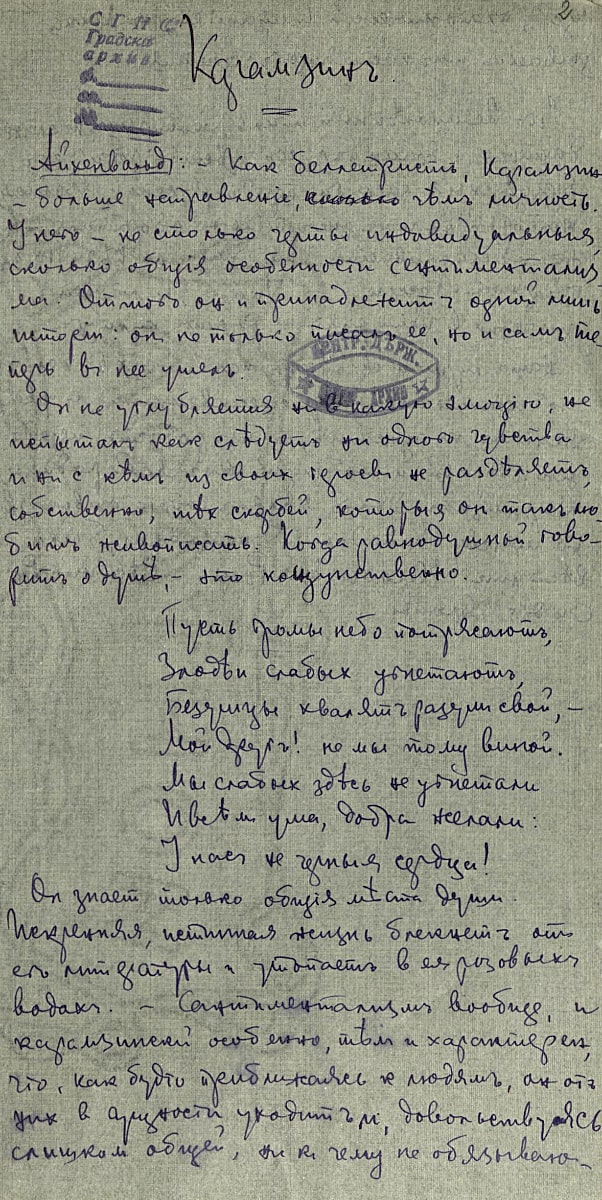 2
С Г Н С
Градски
архив
Карамзинъ.
Айхенвальдъ: – Какъ беллетристъ, Карамзин
– больше направленіе, чѣмъ личность.
У него – не столько черты индивидуальныя,
сколько общія особенности сентиментализ-
ма. Оттого он и принадлежитъ одной лишь
исторіи: он не только писалъ ее, но и самъ те-
перь въ нее ушелъ.
ЦЕНТР. ДЪРЖ.
АРХИВ
Он не углубляется ни в какую эмоцію, не
испыталъ какъ слѣдуетъ ни одного чувства
и ни с кѣмъ из своих героевъ не раздѣляетъ,
собственно, тѣх скорбей, которыя он такъ лю-
битъ живописать. Когда равнодушный гово-
ритъ о душѣ, – это кощунственно.
Пусть громы небо потрясаютъ,
Злодѣи слабых угнетаютъ,
Безумцы хвалятъ разум свой, –
Мой другъ! не мы тому виной.
Мы слабых здѣсь не угнетали
И всѣм ума, добра желали:
У насъ не черныя сердца!
Он знает только общія мѣста души.
Искренняя, истинная жизнь блекнетъ от
его литературы и утопаетъ в ея розовыхъ
водахъ. – Сентиментализмъ вообще, и
карамзинскій особенно, тѣм и характерен,
что, как будто приближаясь к людямъ, он отъ
них в сущности уходитъ, довольствуясь
слишком общей, ни къ чему не обязываю-